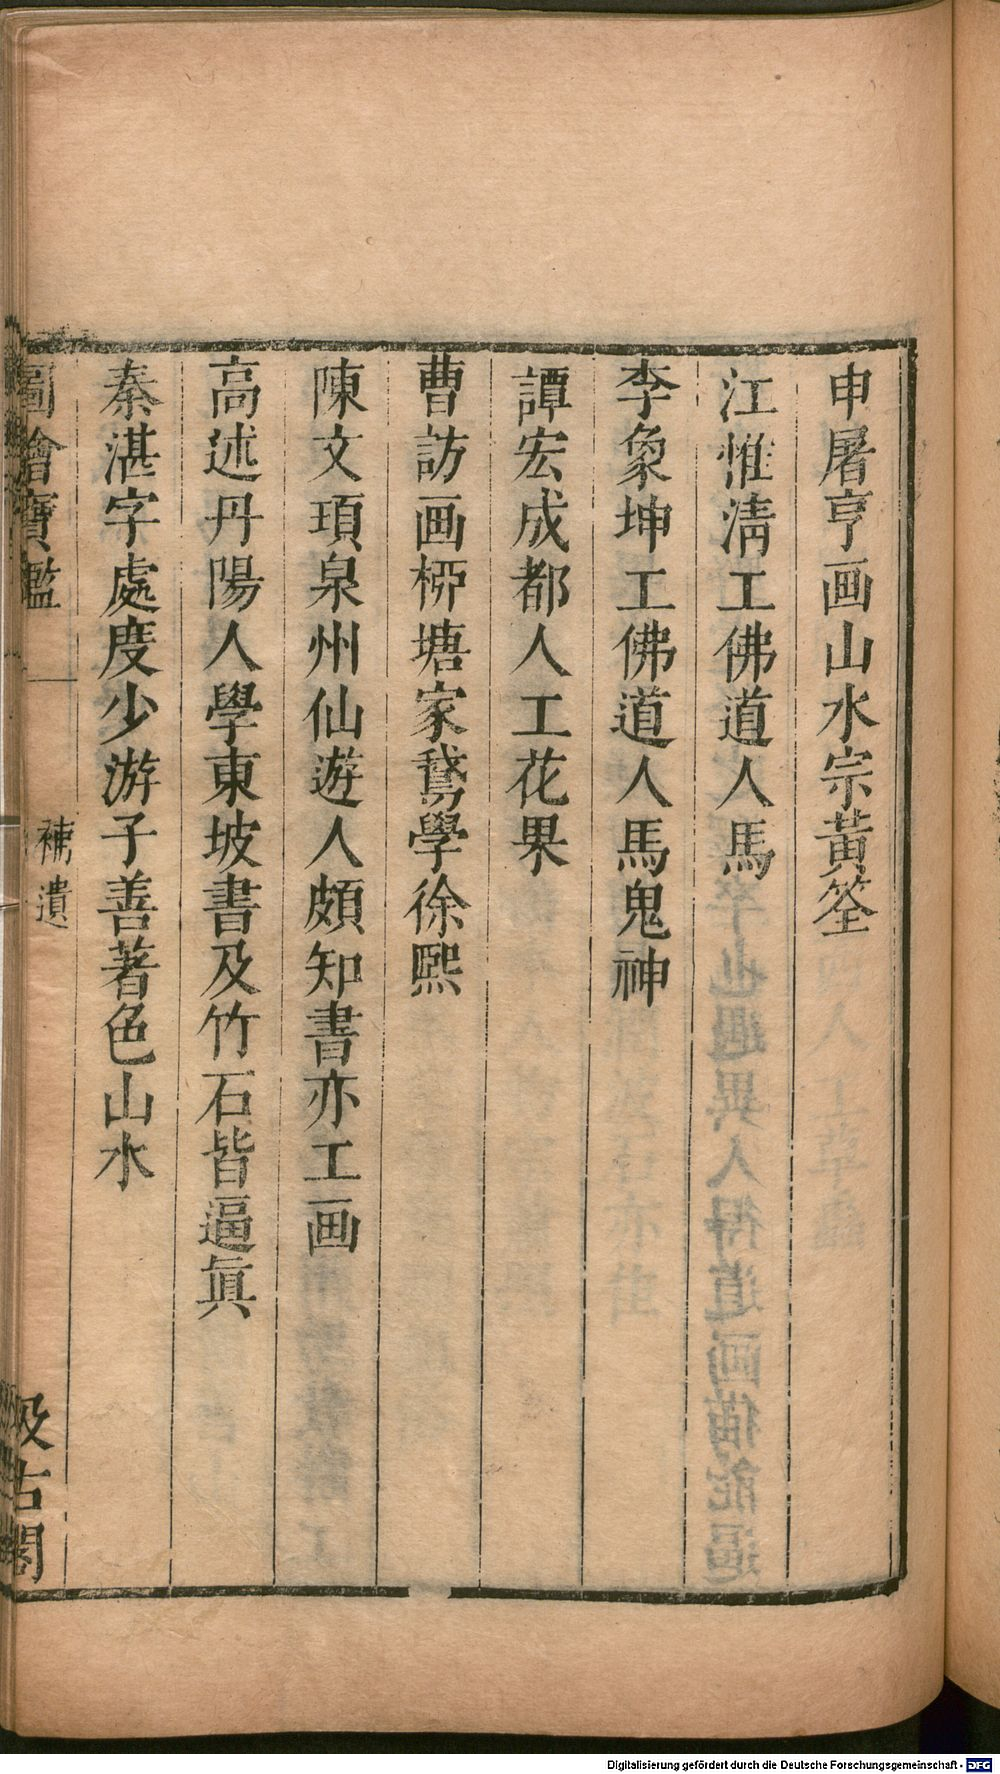 申屠亨画山水宗黃筌
江惟淸工佛道人馬
李象坤工佛道人馬鬼神
譚宏成都人工花果
曹訪画桞塘家鵞學徐熙
陳文頊泉州仙遊人頗知書亦工画
高述丹陽人學東坡書及竹石皆逼眞
秦湛字處度少游子善著色山水
圖繪寶鑑 補遺 汲古閣
Digitalisierung gefördert durch die Deutsche Forschungsgemeinschaft - DFG